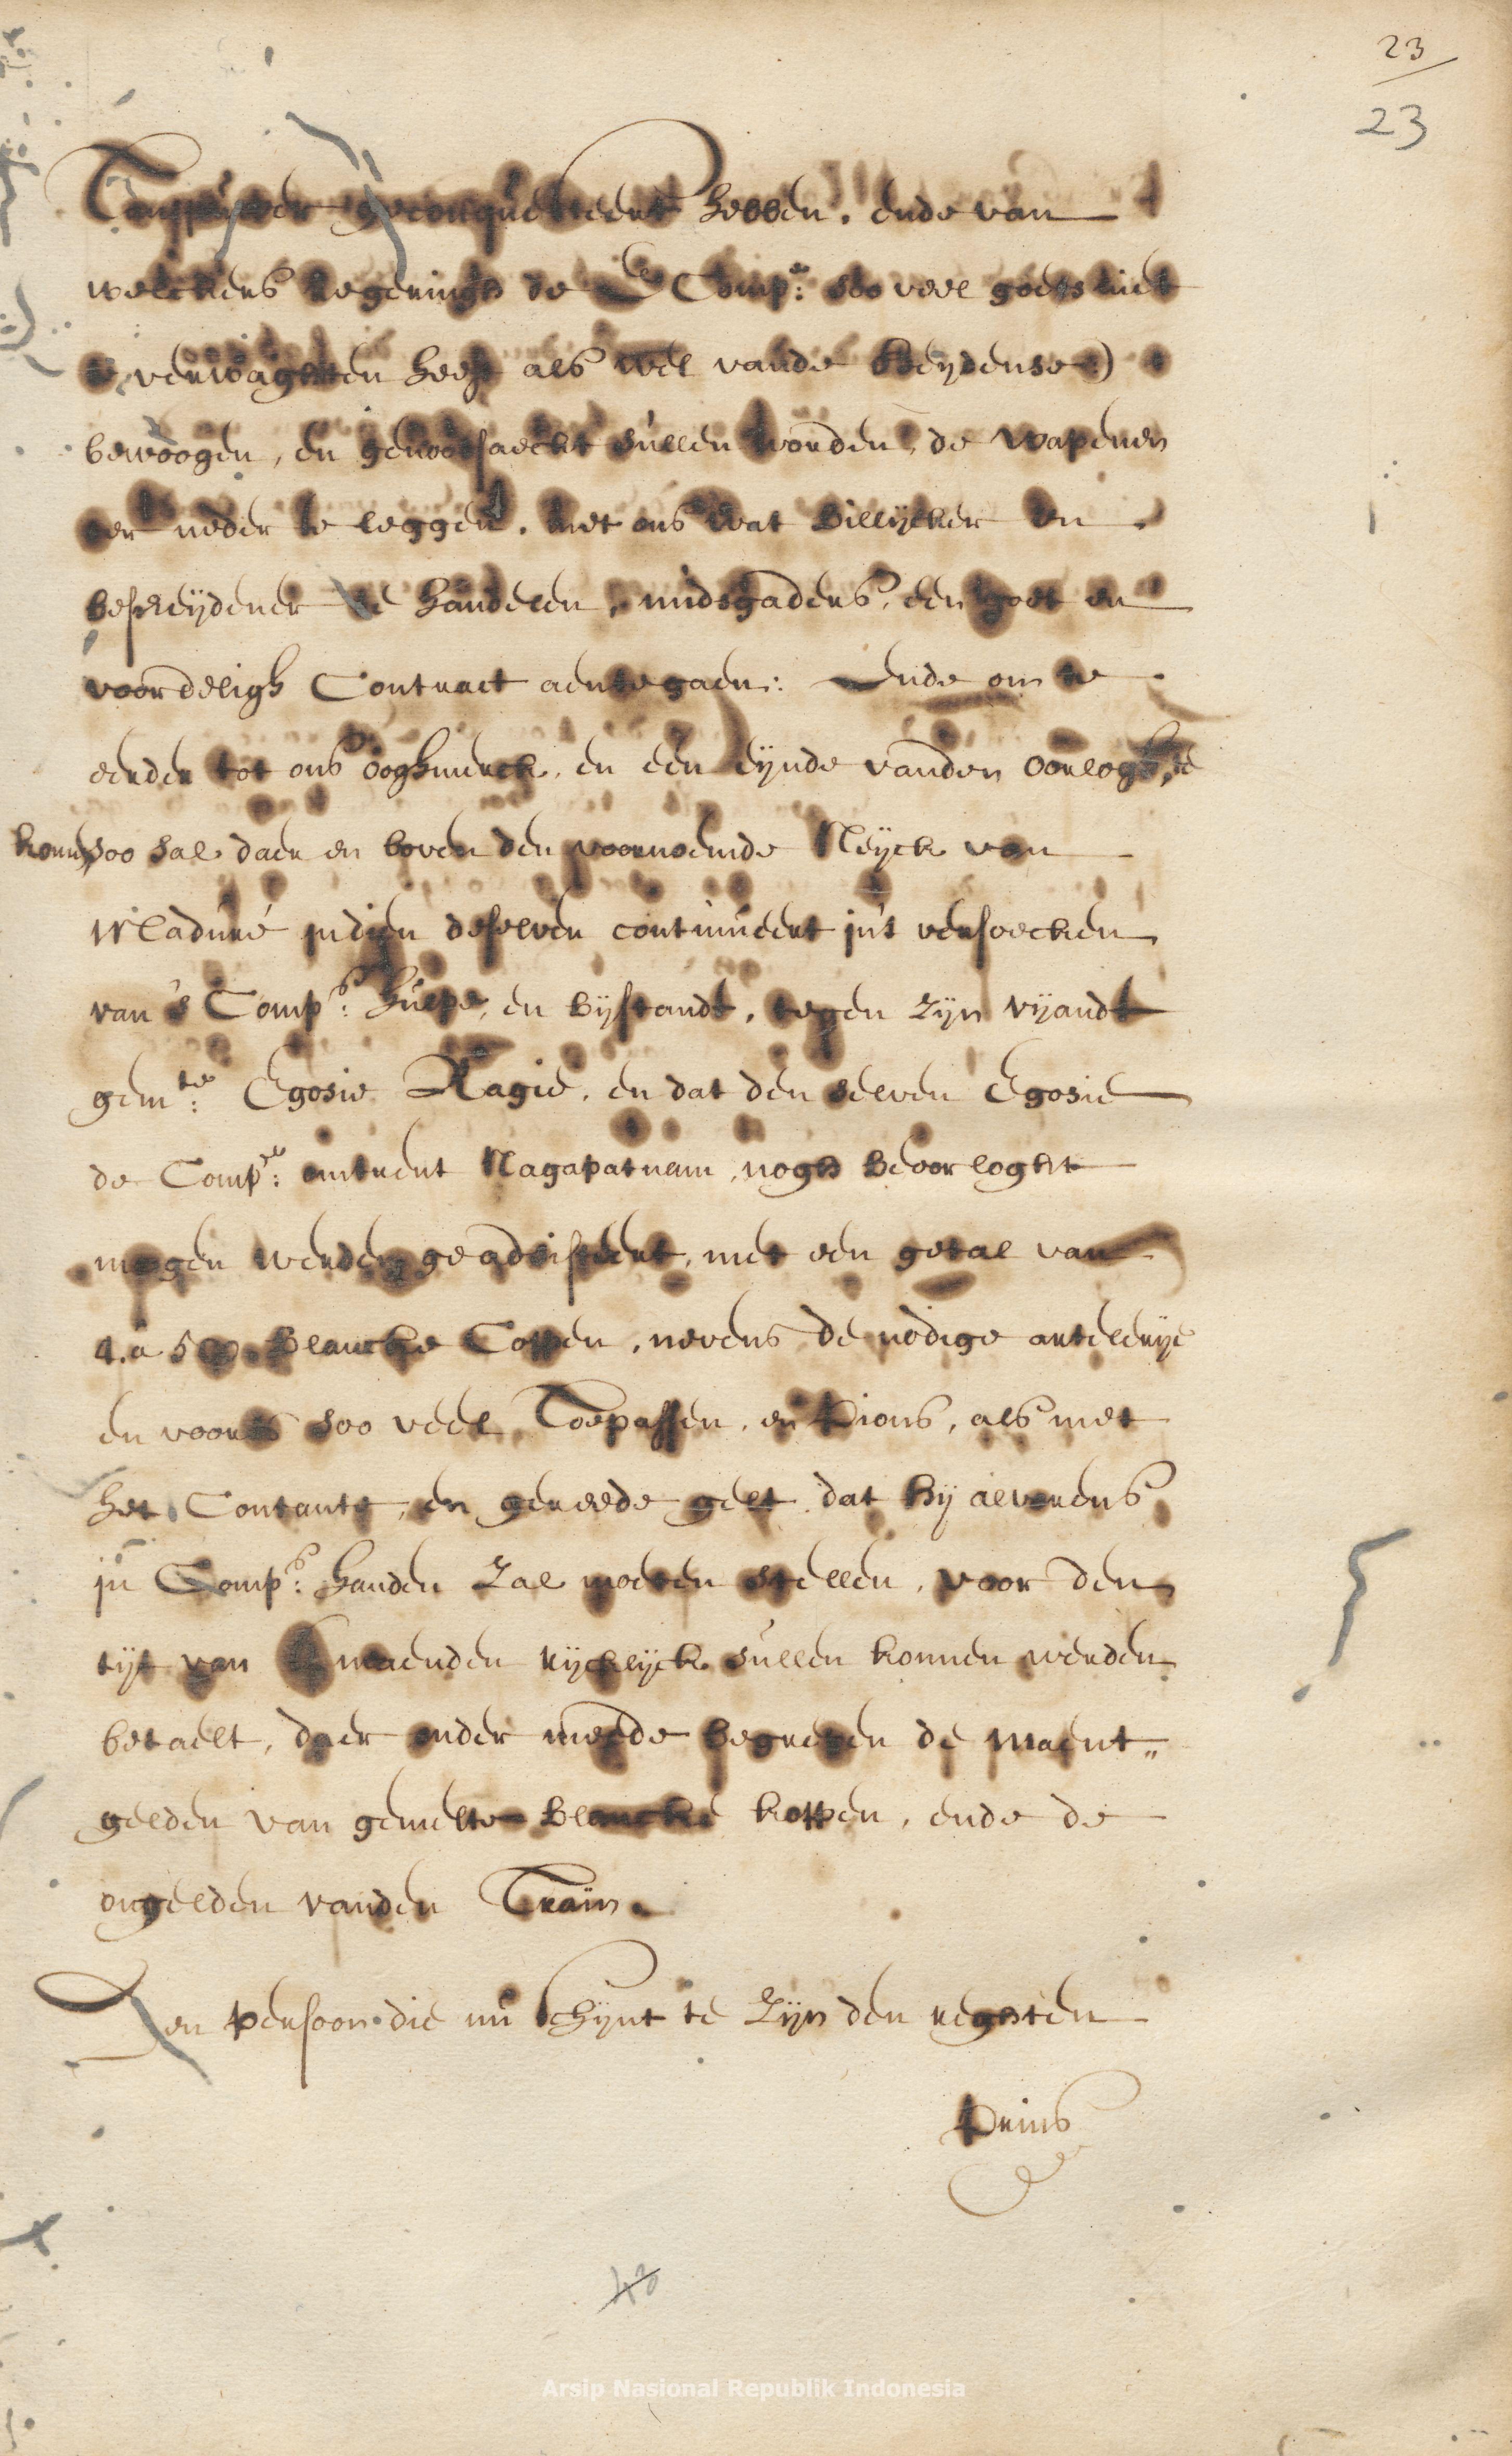 23
23
Tansjouwer geconquesteert hebben, ende van
welckers regeringh de E Comp:e soo veel goets niet
te verwaghten heeft als wel vande heydense)
bewoogen, en genootsaeckt sullen worden, de wapenen
ter neder te leggen, met ons wat billijcker en
bescheijdener te handelen, midsgaders, een goet en
voordeligh Contract aentegaen: Ende om te
eerder tot ons ooghmerck, en een eijnde vanden oorlogh, te
komen, soo sal daer en boven den voornoemde Neijck van
Maduré indien deselven continueert in't versoecken
van 's Comp:s hulpe, en bijstandt, tegen zijn vijandt
gem:te Egosie Ragie, en dat den selven Egosie
de Comp:e omtrent Nagapatnam, nogh beoorloght
mogen werden geadsisteert, met een getal van
4. a 500. Blancke Coppen, nevens de nodige artelerije
en voorts soo veel Toepassen, en Pions, als met
het Contante, en gereede gelt, dat hij alvorens
in Comp:s handen zal moeten stellen, voor den
tijt van maenden rijckelijck sullen konnen werden
betaelt, daer onder mede begrepen de maent„
gelden van gemelte Blancke koppen, ende de
ongelden vanden Train.
Den persoon die nu schijnt te zijn den reghten
Prins
Arsip Nasional Republik Indonesia